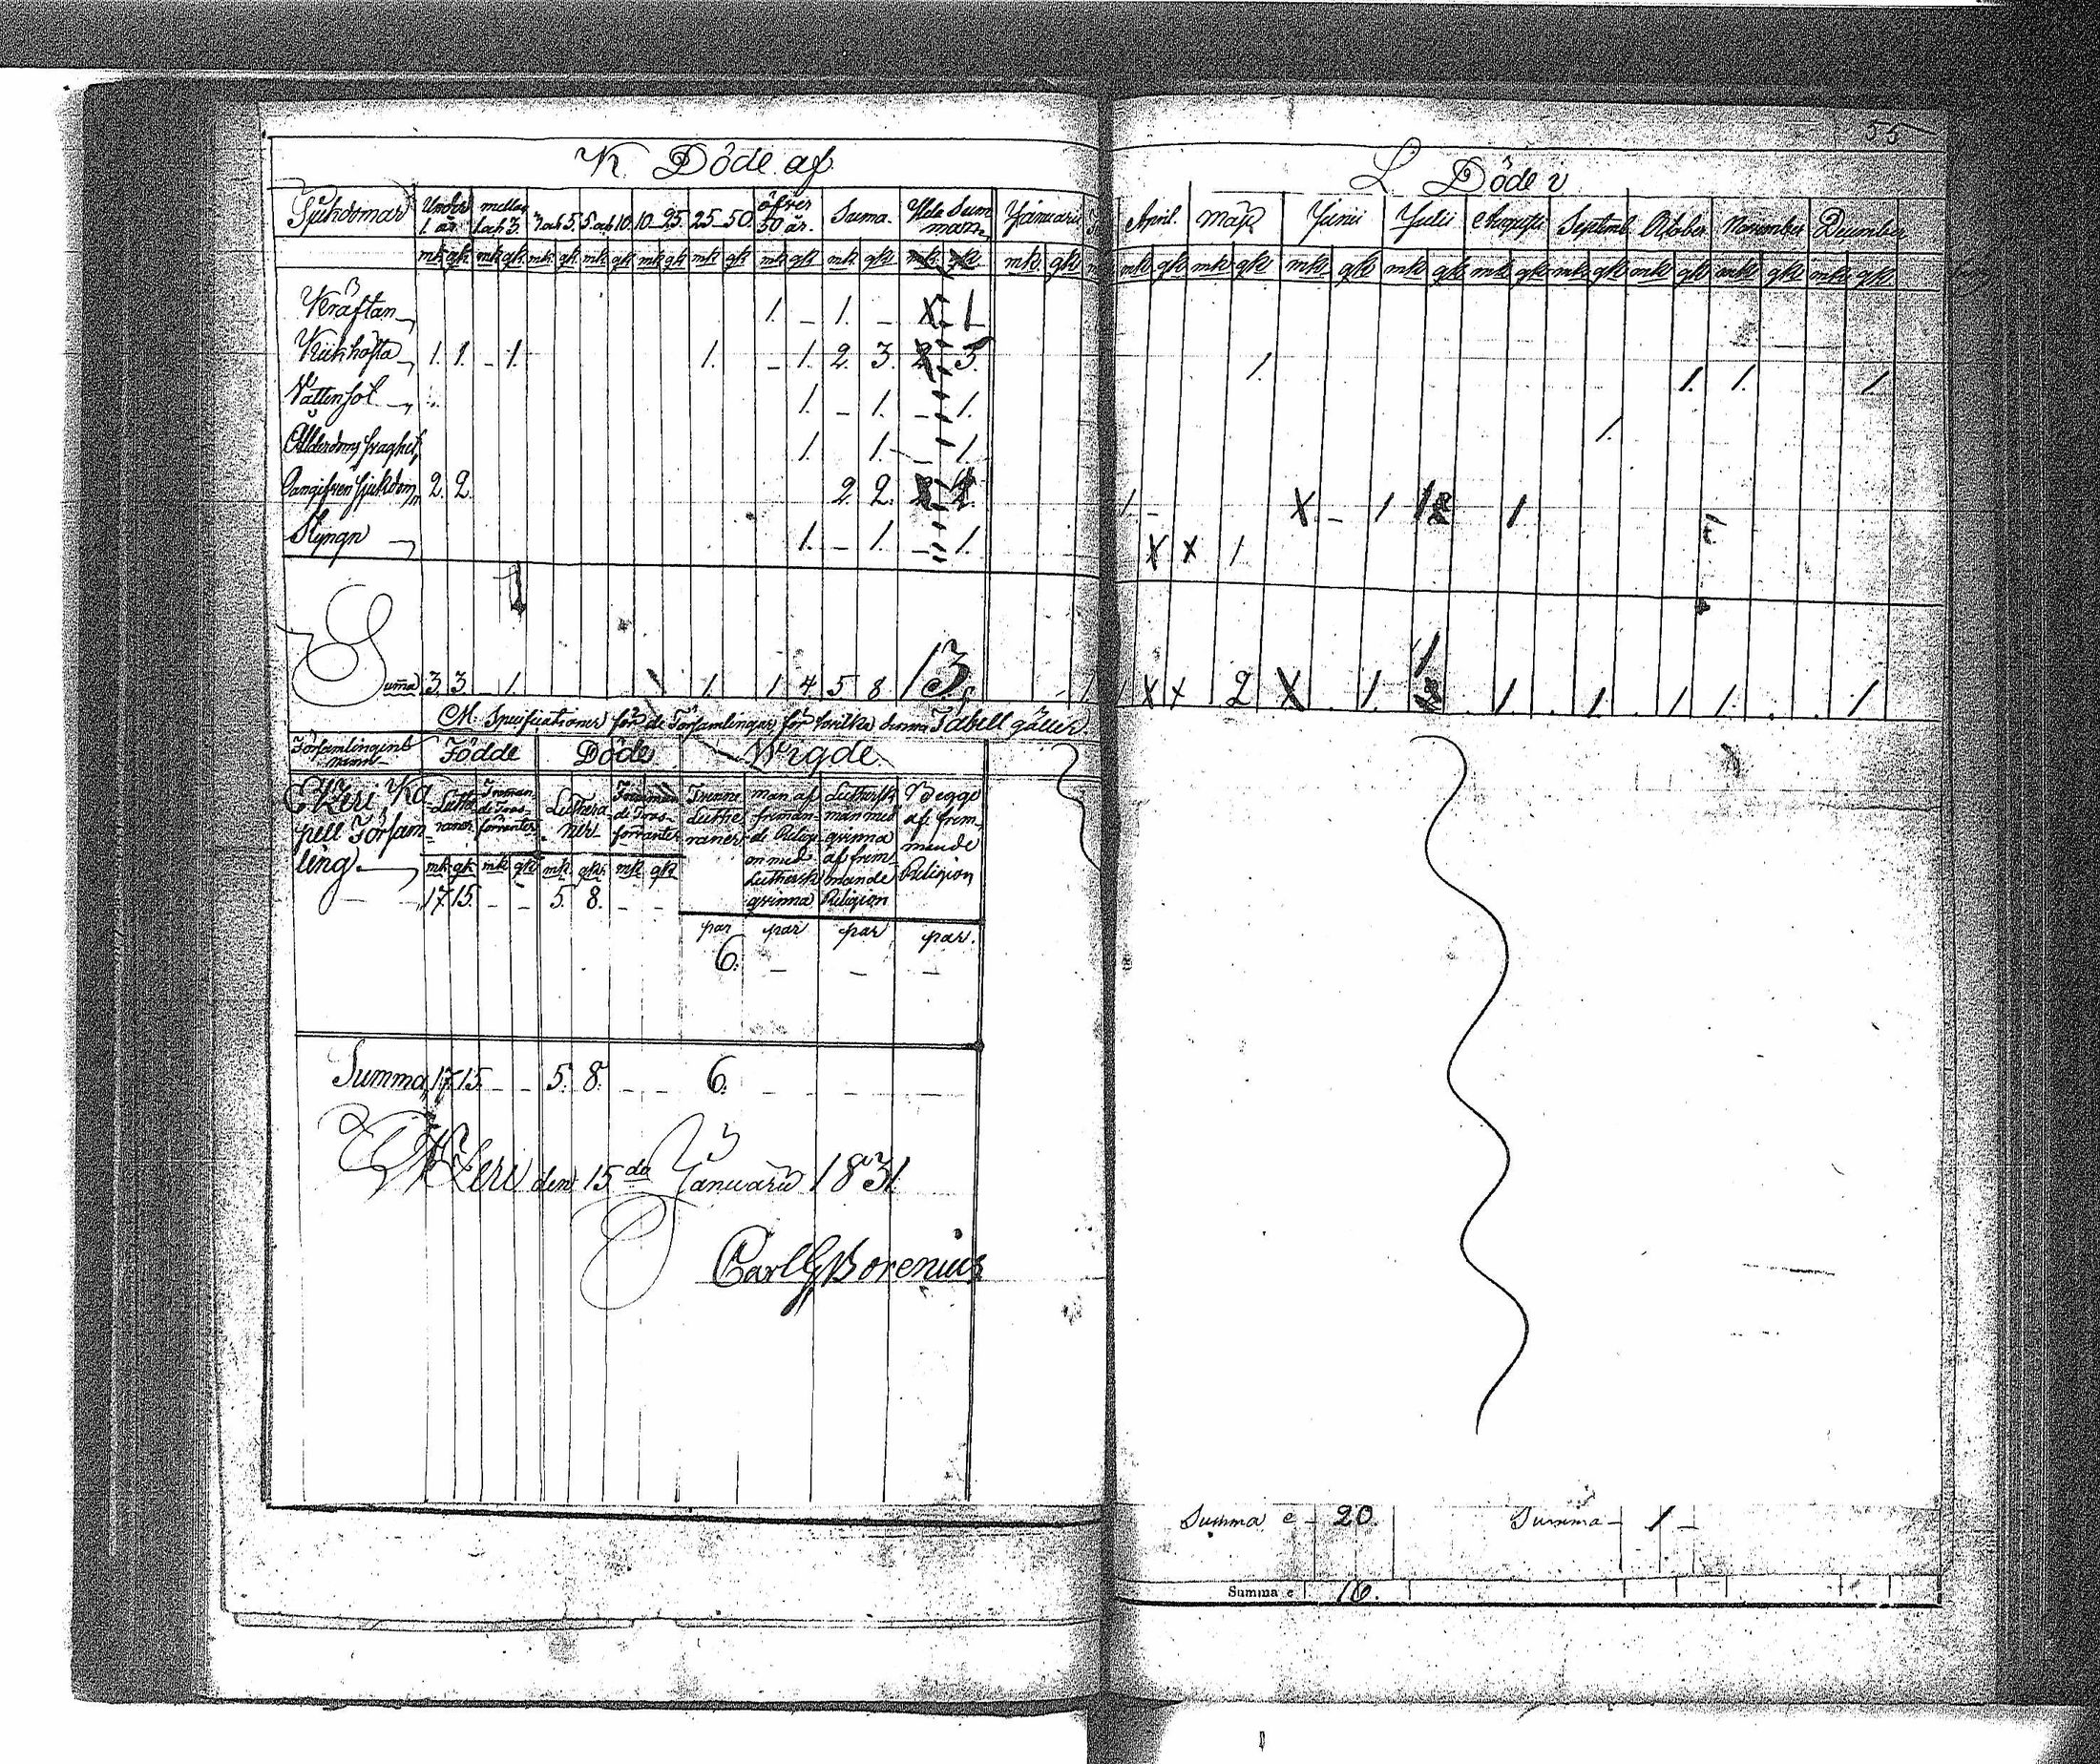 55
K Döde af
L Döde i
Sjukdomar Under 1 år. mellan 1 och 3. 3 och 5. 5 och 10. 10_25 25_50. öfver 50 år. Suma. Hela Summan Januarii
April. Maji Junii Julii Augusti Septemb October November December
mk qk mk qk mk qk mk qk mk qk mk qk mk qk mk qk mk qk
mk qk mk qk mk qk mk qk mk qk mk qk mk qk mk qk mk qk
Kräftan 1. _ 1. _ 1
Kikhosta 1. 1. _ 1. 1. _ 1. 2. 3. 5. 1. 1. 1. 1.
Vattensot 1. _ 1. _ 1. 1.
Ålderdoms svaghet 1. 1. _ 1.
Oangifven sjukdom 2. 2. 2. 2. 1. _ X _ 1 1 1
Styngn 1. _ 1. _ 1. X X 1
Suma 3. 3. _ 1. 1. 1. 4. 5. 8. 13. X X 2 X 1. 1. 1. 1. 1. 1.
M. Specificationer för de Församlingar för hvilka denna Tabell gäller.
Församlingens namn Födde Döde Vigde
Kapell Församling
Lutheraner Främmande Trosförvanter
Lutheraner Främmande Trosförvanter
Lutheraner
man af främmande Religion med Luthersk qvinna
Luthersk man med qvinna af främmande Religion
Begge af främmande Religion
mk qk mk qk mk qk mk qk
17. 15. _ _ 5. 8. _ _
par par par par.
6. _ _ _
Summa 17. 15. _ _ 5. 8. _ _ 6. _ _ _
den 15de Januarii 1831.
Carl G Borenius
Summa e 20. Summa 1
Summa e 16.